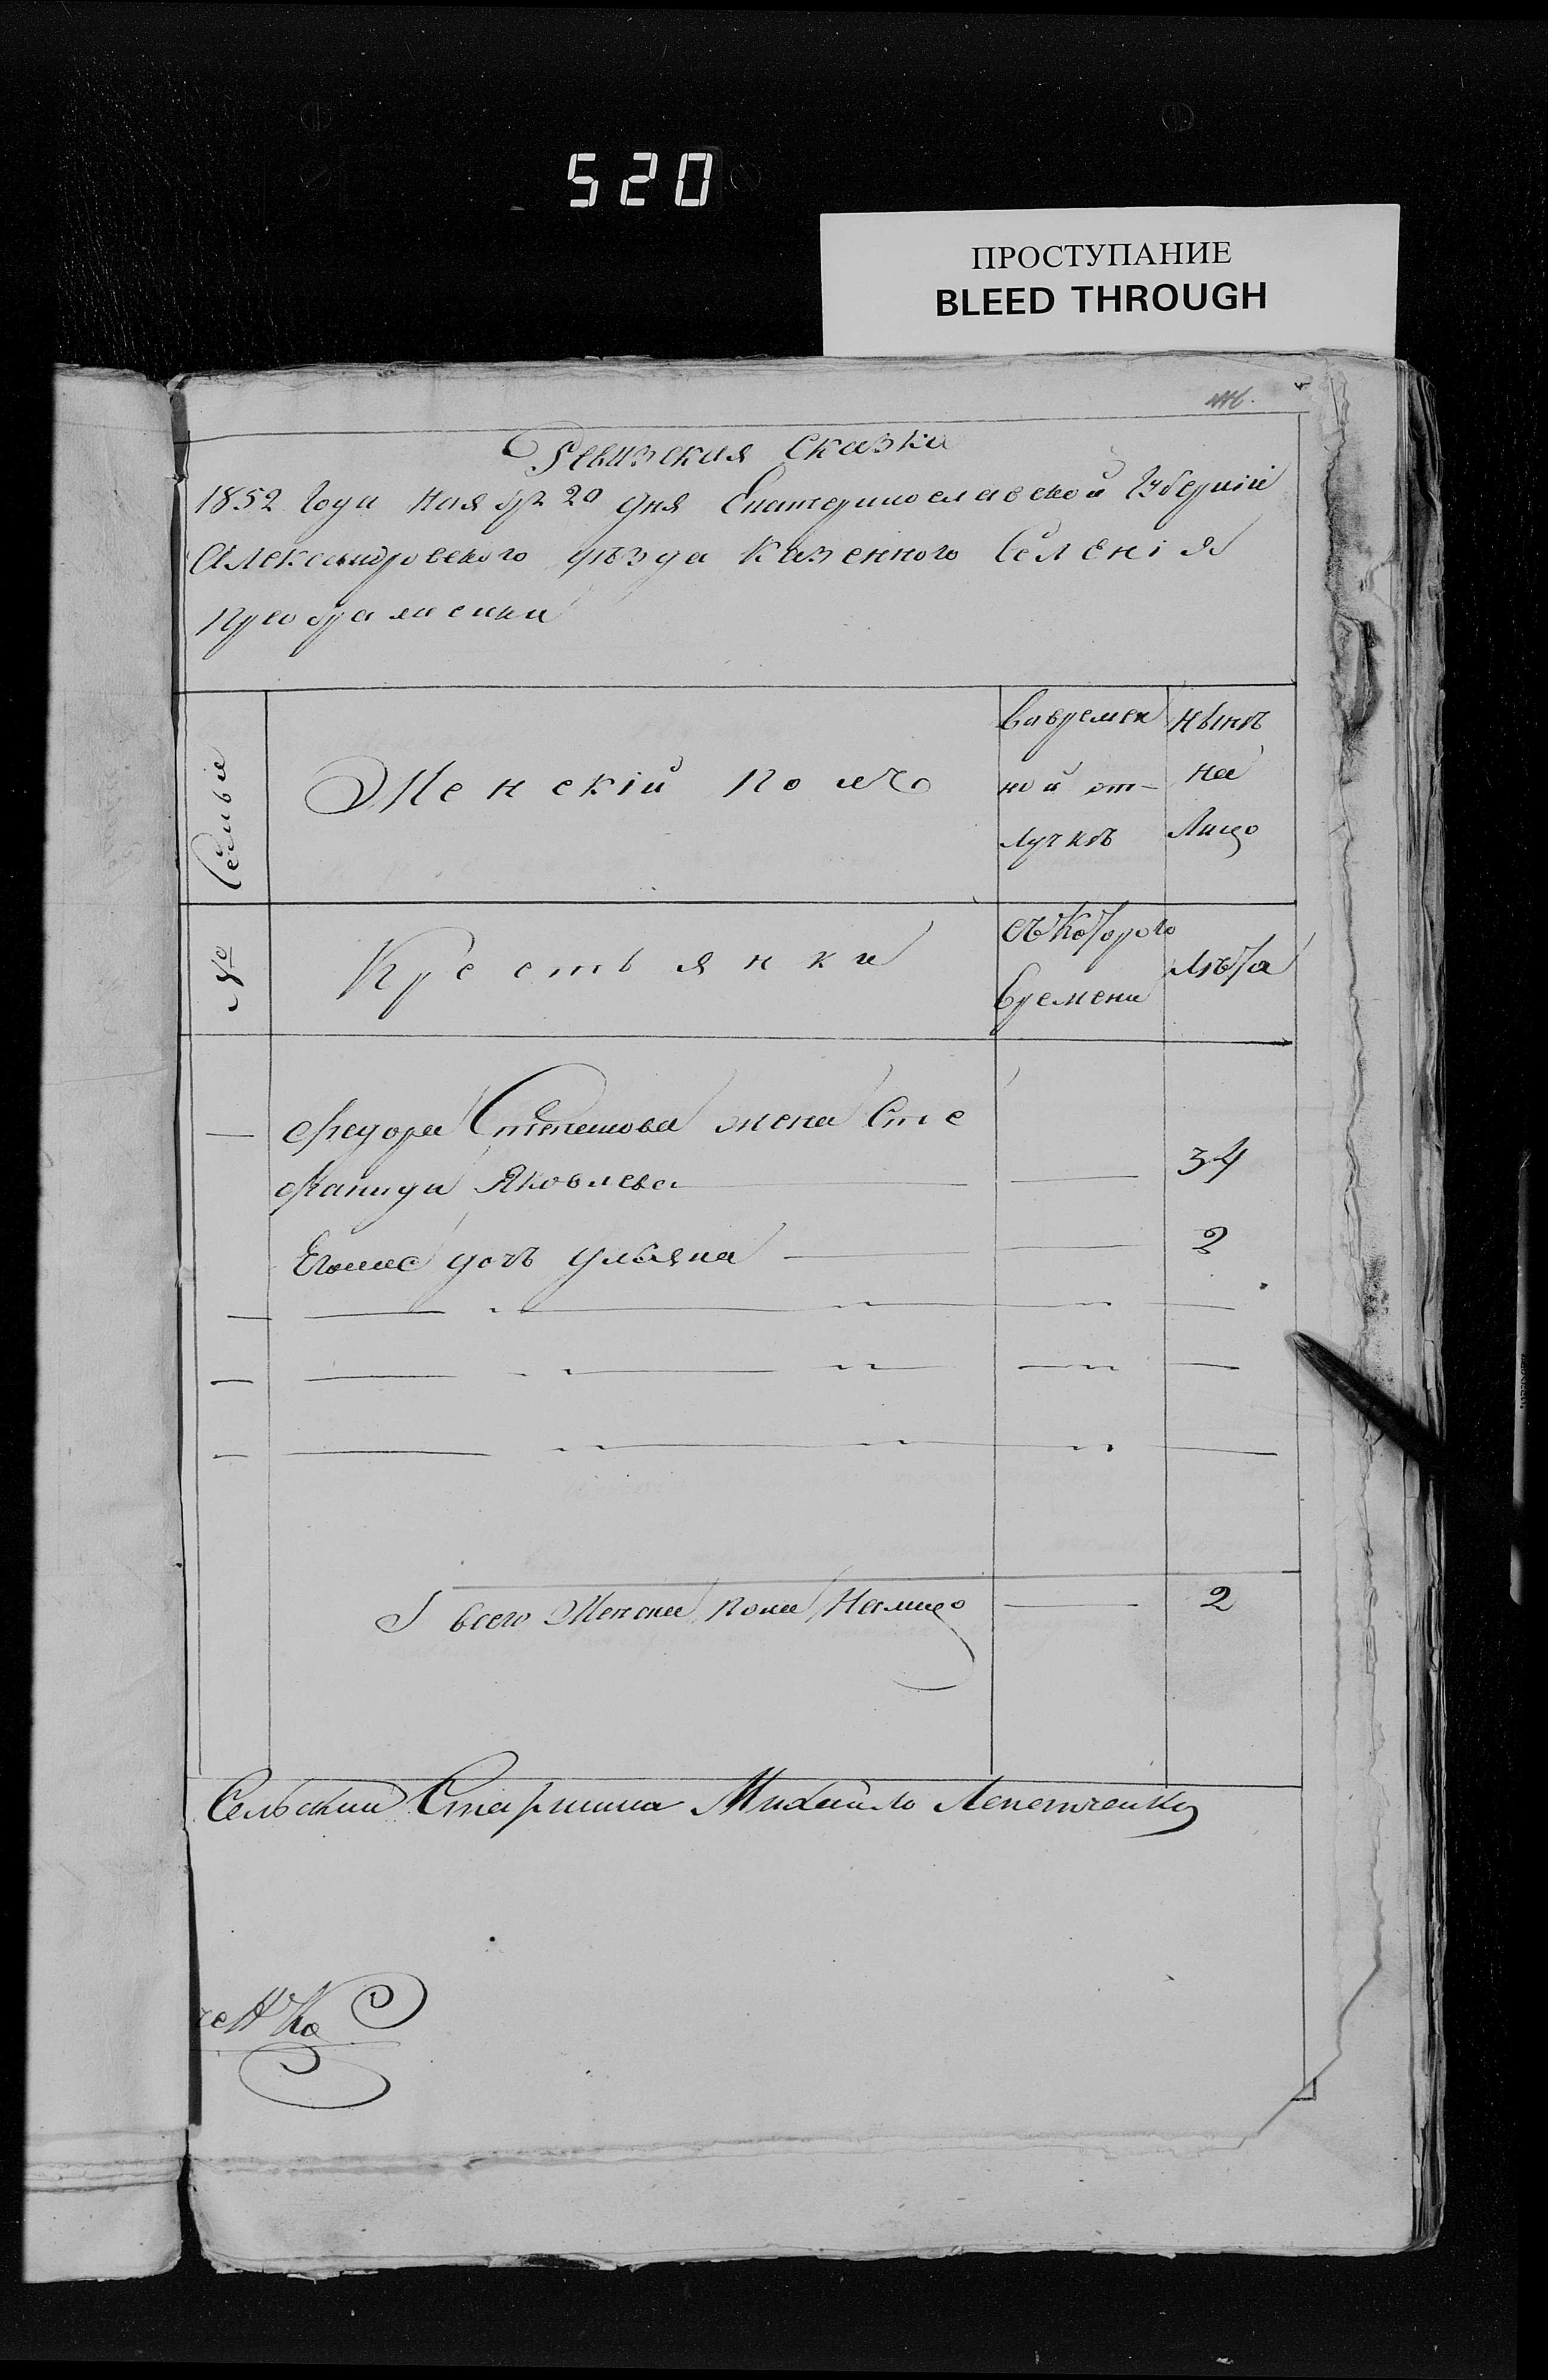 520
ПРОСТУПАНИЕ
BLEED THROUGH
Ревизская Сказка
1852 Года Наябр 20 дня Екатеринославской Губернии
Александровского уѣзда Казенного Селенія
Преображенки
Семьи
Женскій полъ
Вовремен
ной от-
лучкѣ
Нынѣ
на
Лицо
№
Крестьянки
Съ Которого
Времени
Лѣта
Федора Степанова жена Сте
фанида Яковлева 34
Егоже дочь Ульяна 2
И всего Женска пола Налицо 2
Сельский Старшина Михайло
ченко